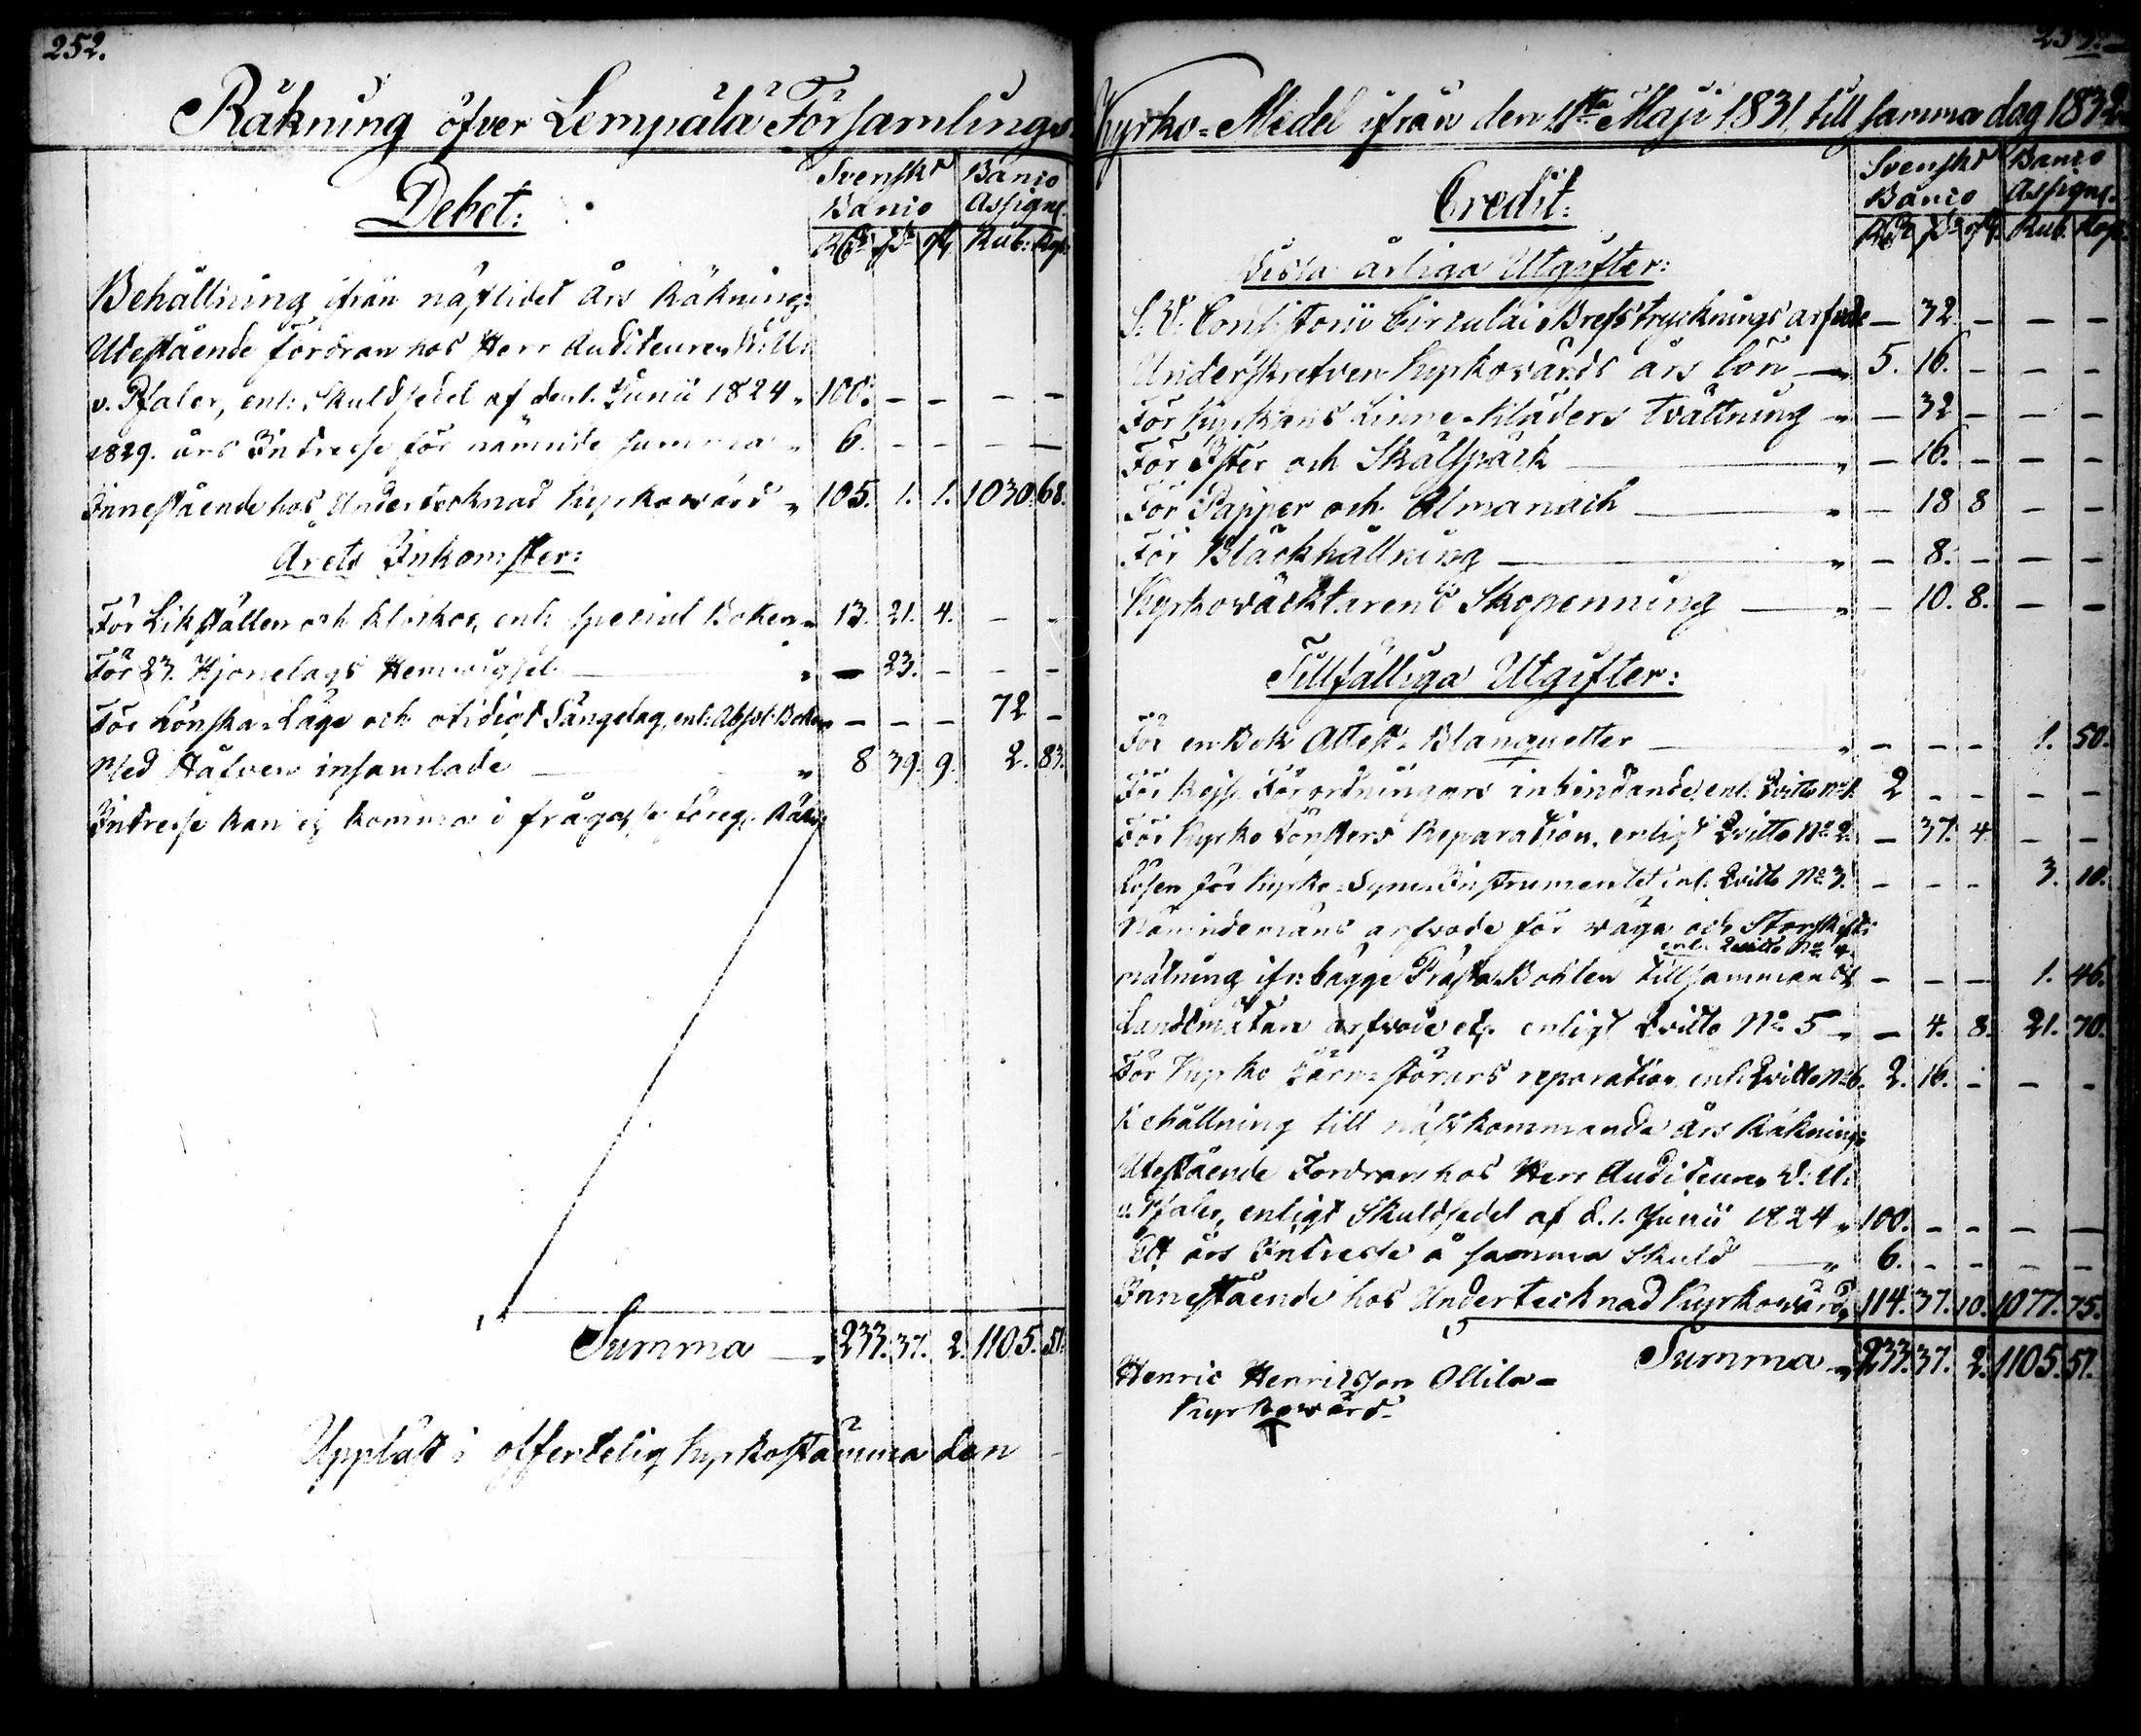 252.
Räkning öfver Lempälä Församlings
Debet:
Svenskt Banco
Banco Assign.
RD: ß rst. Rub: Kop:
Behållning ifrån näslidet års Räkning:
Utestående fordran hos Herr Auditeuren
v. Pfaler, enl: Skuldsedel af den 1. Junii 1824 " 100. – – – –
1829. års Intresse för nämnde summa " 6. – – – –
Innestående hos Undertecknad Kyrkovärd " 105. 1. 1. 1030. 68.
Årets Inkomster:
För Likställen och klockor, enl: special Boken " 13. 21. 4. – –
För 23. Hjonelags Hemvigsel " – 23. – – –
För Lönska-Läge och otidigt Sängelag, enl: Absol: Boken – – – 72 –
Med Håfven insamlade " 8 39. 9. 2. 83.
Intresse kan ej komma i fråga, se föreg. Räkn:
Summa " 233. 37. 2. 1105. 51.
Uppläst i offentelig Kyrkostämma den
Kyrko-Medel ifrån den 1sta Maji 1831 till samma dag 1832
Credit:
Svenskt Banco
Banco Assign.
RD: ß rst. Rub. Kop:
Vissa årliga Utgifter:
S. V. Consistorii Circulair Brefs tryckningsarfvode – 32. – – –
Underskrefven Kyrkovärds års lön " 5. 16. – – –
För Kyrkans Linne-kläders tvättning " – 32 – – –
För Ister och Skälspäck " – 16. – – –
För Papper och Almanach " – 18 8 – –
För Bläckhållning " – 8. – – –
Kyrkoväcktarens Skopenning " – 10. 8. – –
Tillfälliga Utgifter:
För en Bok Attest-Blanquetter " – – – 1. 50.
För Kejs. Förordningars inbindande, enl. Qvitto No 1. 2 – – – –
För Kyrko Fönsters Reparation, enligt Qvitto No 2. – 37. 4. – –
Lösen för Kyrko-Syne-Instrumentet enl. Qvitto No 3. – – – 3. 10.
Nämndemäns arfvode för väga och Storskifts
enl. Qvitto No 4.
mätning ifr: bägge Prästa-Bohlen tillsammans – – – 1. 46.
Landtmätare arfvode etc. enligt Qvitto No 5 " – 4. 8. 21. 70.
För Kyrko reparation, enl. Qvitto No 6. 2. 16. – – –
Behållning till nästkommande års Räkning:
Utestående Fordran hos Herr Auditeuren
v. Pfaler, enligt Skuldsedel af d. 1. Junii 1824 " 100. – – – –
Ett års Intresse å samma Skuld " 6. – – – –
Innestående hos Undertecknad Kyrkovärd " 114. 37. 10. 1077. 75.
Summa " 233. 37. 2. 1105. 51.
Henric Henricsson Ollila
Kyrkovärd